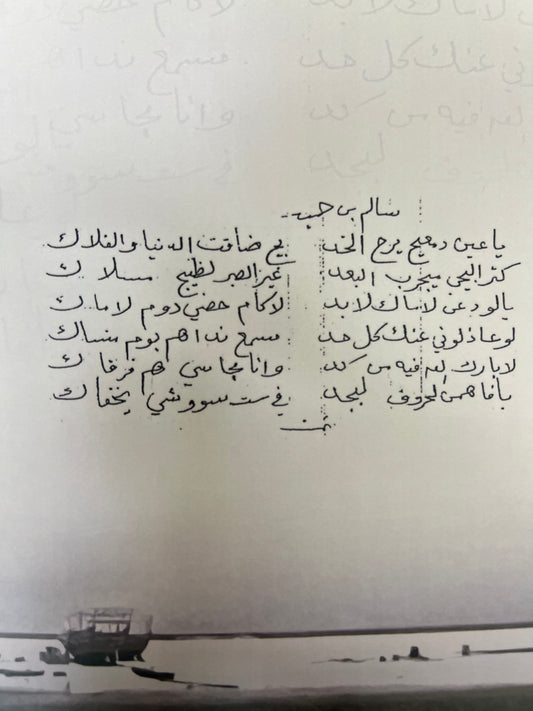 سالم بن حميد
يا عين دمعج يرح الخد بج ضاقت الدنيا والفلاك
كثر البجي ميجرب البعد غير الصبر لظيج مسلاك
يالود عن لاماك لا بد لا كام حضي دوم لاماك
لوعاذلوني عنك كل حد مسمع نداهم يوم منساك
لا بارك الله فيه من كد وانا بجاسي هم فرقاك
يافاهمن الحروف لبجد في ست سوو شي يخفاك
تمت